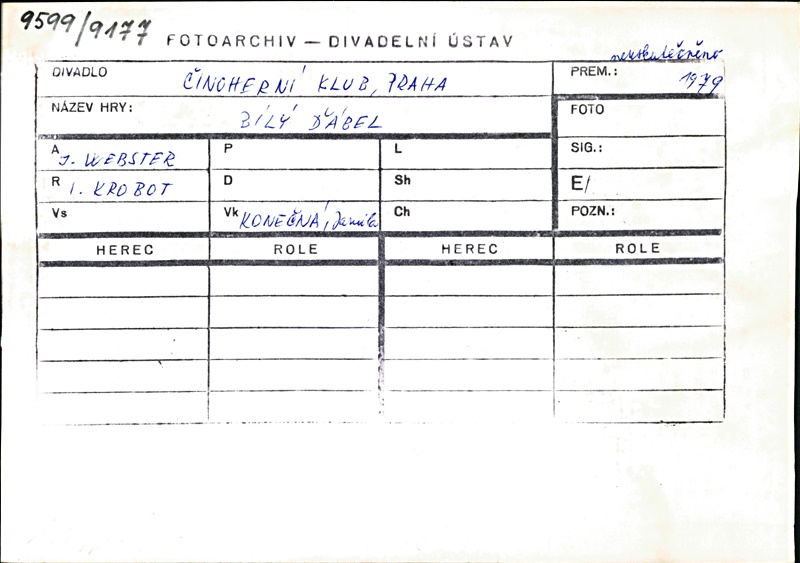 9599/9177
FOTOARCHIV – DIVADELNÍ ÚSTAV
neuskutečněno
DIVADLO ČINOHERNÍ KLUB, PRAHA PREM.: 1979
NÁZEV HRY: BÍLÝ ĎÁBEL FOTO
A J. WEBSTER P L SIG.:
R I. KROBOT D Sh E/
Vs Vk KONEČNÁ, Jamila Ch POZN.:
HEREC ROLE HEREC ROLE